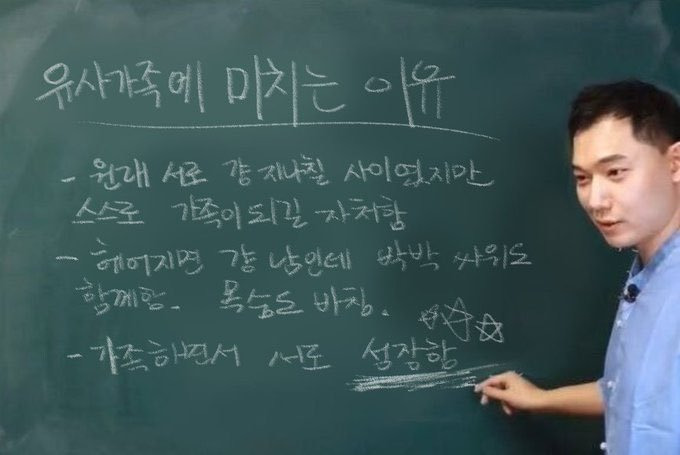 유사가족에 미치는 이유
- 원래 서로 걍 지나칠 사이였지만
스스로 가족이되길 자처함
- 헤어지면 걍 남인데 박박 싸워도
함께함. 목숨도 바침.
- 가족하면서 서로 성장함